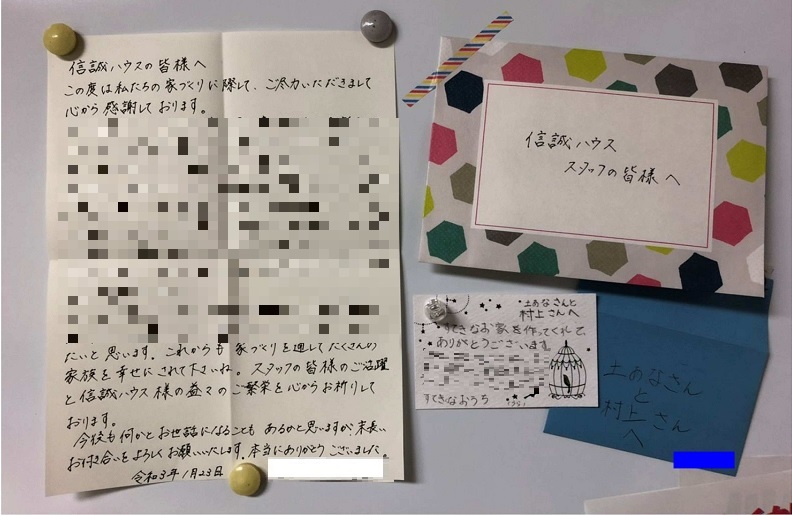 信誠ハウスの皆様へ
この度は私たちの家づくりに際して、ご尽力いただきまして
心から感謝しております。
たいと思います。これからも家づくりを通してたくさんの
家族を幸せにされて下さいね。スタッフの皆様のご活躍
と信誠ハウス様の益々のご繁栄を心からお祈りして
おります。
今後も何かとお世話になることもあるかと思いますが、末長い
お付き合いをよろしくお願いいたします。本当にありがとうございました。
令和3年1月23日
信誠ハウス
スタッフの皆様へ
土あなさんと
村上さんへ
すてきなお家を作ってくれて
ありがとうございます
すてきなおうち
土あなさん
と
村上さん
へ